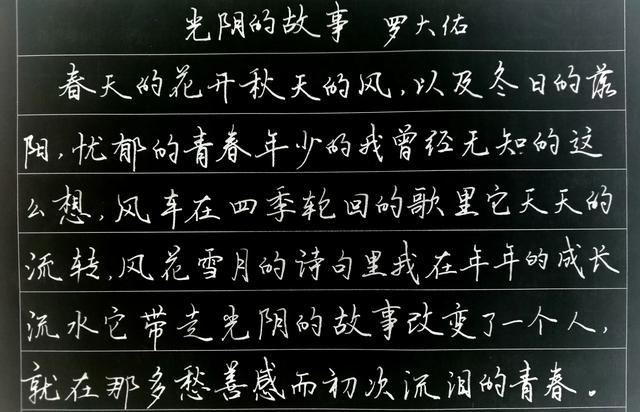 光阴的故事 罗大佑
春天的花开秋天的风,以及冬日的落
阳,忧郁的青春年少的我曾经无知的这
么想,风车在四季轮回的歌里它天天的
流转,风花雪月的诗句里我在年年的成长
流水它带走光阴的故事改变了一个人,
就在那多愁善感而初次流泪的青春。